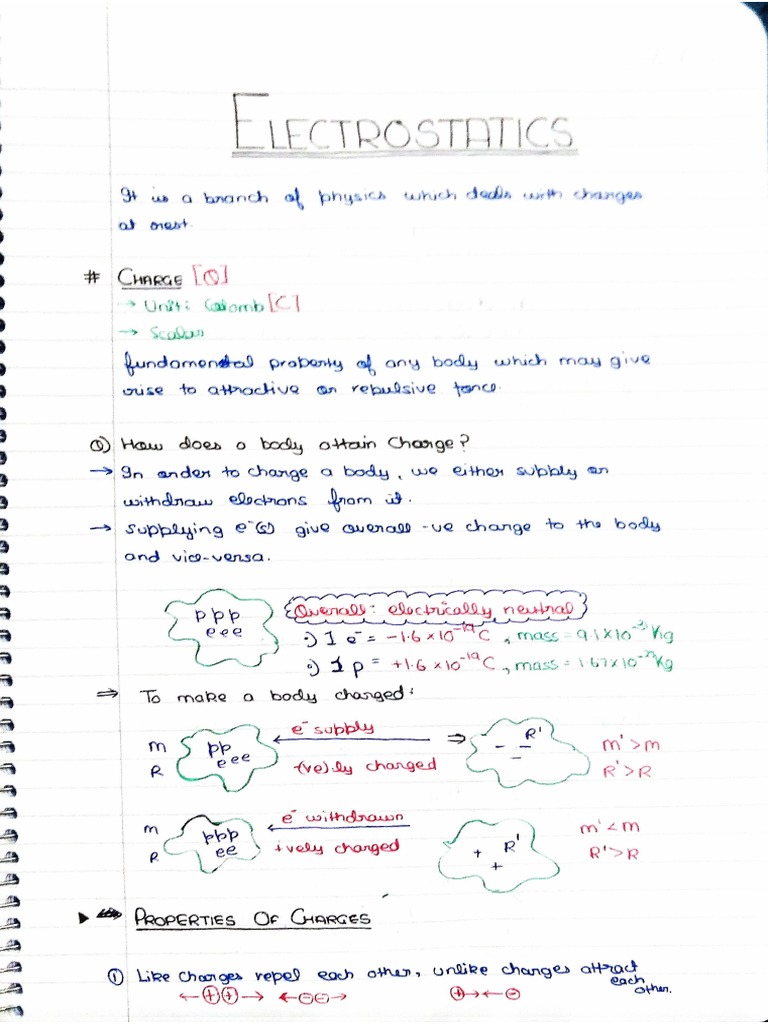 ELECTROSTATICS
It is a branch of physics which deals with charges
at rest.
# CHARGE [Q]
→ Unit: Coulomb [C]
→ Scalar
fundamental property of any body which may give
rise to attractive or repulsive force.
Q) How does a body attain Charge?
→ In order to charge a body, we either supply or
withdraw electrons from it.
→ supplying e⁻(s) give overall -ve charge to the body
and vice-versa.
p p p
e e e
Overall: electrically neutral
•) 1 e⁻ = -1.6 × 10⁻¹⁹ C , mass = 9.1 × 10⁻³¹ Kg
•) 1 p = +1.6 × 10⁻¹⁹ C , mass = 1.67 × 10⁻²⁷ Kg
⇒ To make a body charged:
m
R
pp
eee
e⁻ supply
-(ve)ly charged
⇒
- - -
R'
m' > m
R' > R
m
R
ppp
ee
e⁻ withdrawn
+ively charged
+ +
R'
m' < m
R' > R
PROPERTIES OF CHARGES
① Like charges repel each other, unlike charges attract
each
other.
← ⊕ ⊕ → ← ⊖ ⊖ → ⊕ → ← ⊖